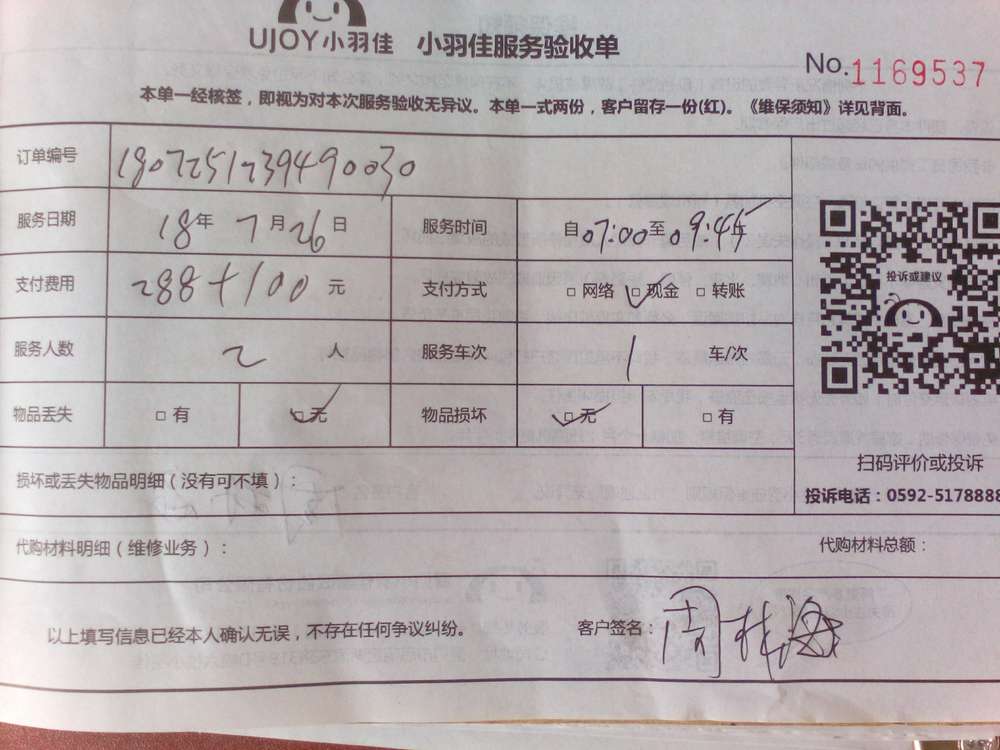 UJOY小羽佳 小羽佳服务验收单
No.1169537
本单一经核签，即视为对本次服务验收无异议。本单一式两份，客户留存一份(红)。《维保须知》详见背面。
订单编号 1807251239490030
服务日期 18年 7月26日 服务时间 自07:00至09:45
支付费用 288+100 元 支付方式 □网络 ☑现金 □转账
服务人数 2 人 服务车次 1 车/次
物品丢失 □有 ☑无 物品损坏 ☑无 □有
投诉或建议
扫码评价或投诉
投诉电话：0592-5178888
损坏或丢失物品明细（没有可不填）：
代购材料明细（维修业务）： 代购材料总额：
以上填写信息已经本人确认无误，不存在任何争议纠纷。 客户签名：周